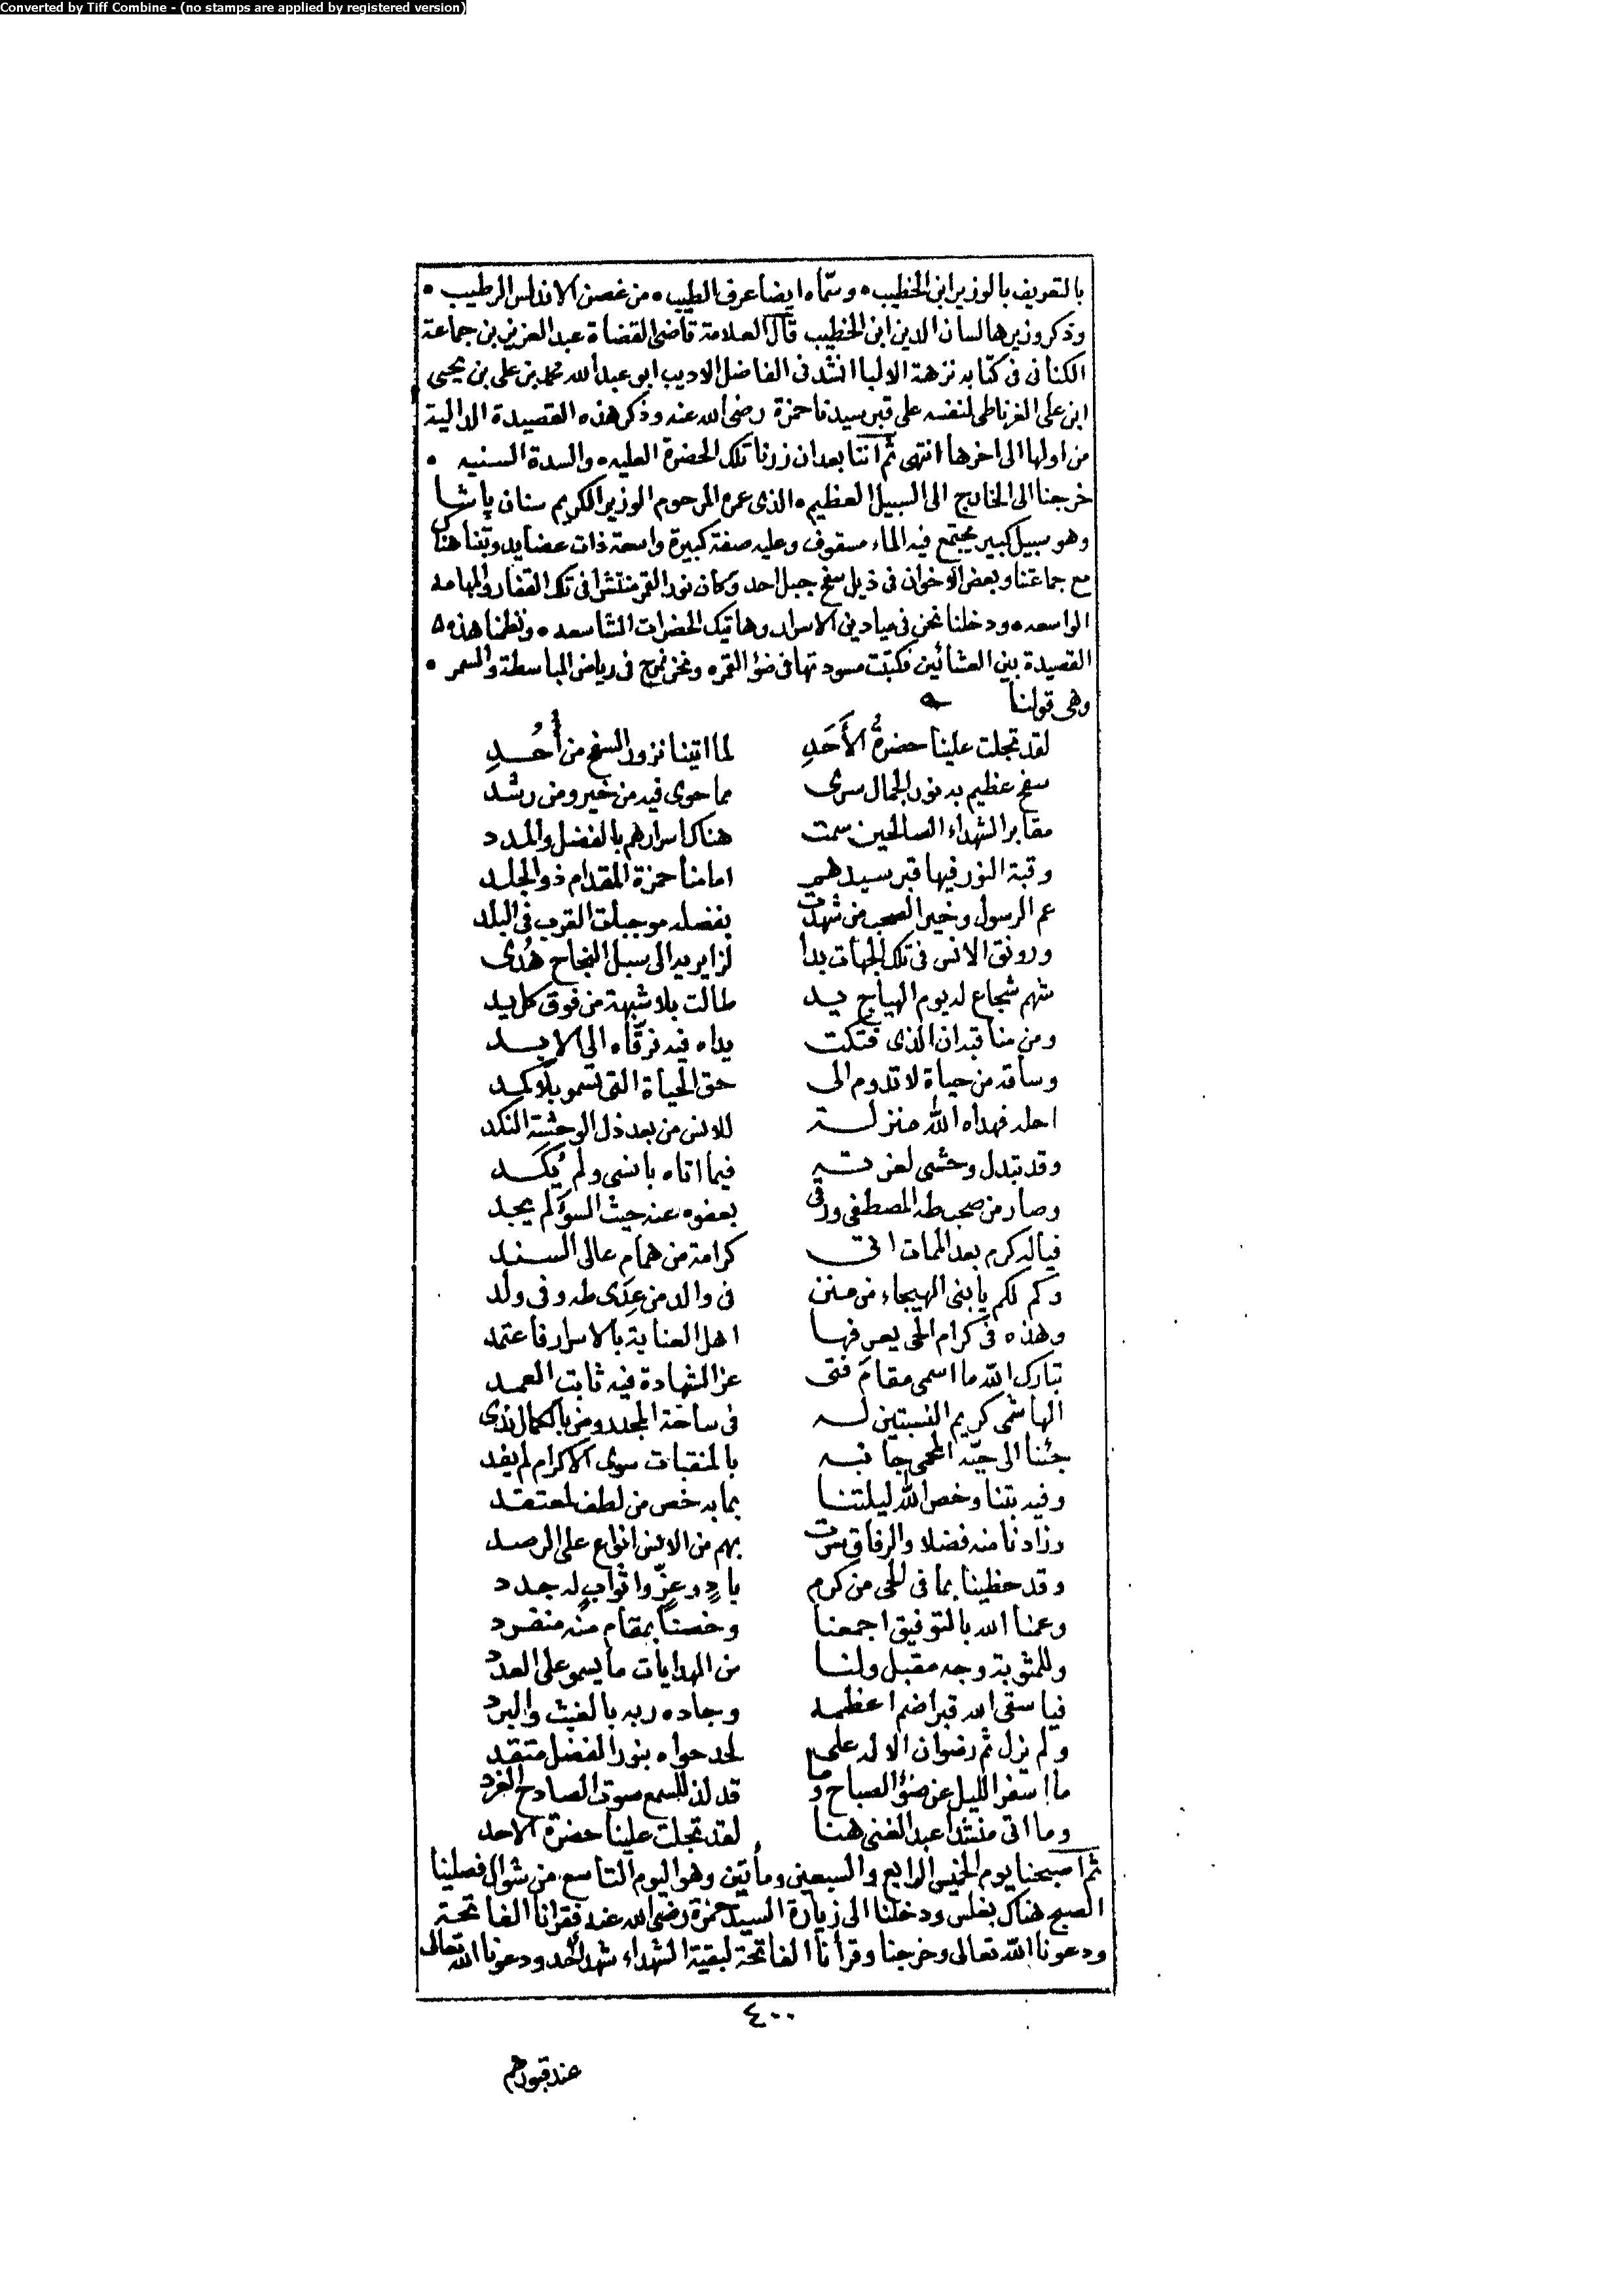 Converted by Tiff Combine - (no stamps are applied by registered version)
بالتعريف بالوزير ابن الخطيب • وسمّاه ايضا عرف الطيب • من غصن الاندلس الرطيب •
وذكر وزيرها لسان الدين ابن الخطيب قال العلامة قاضى القضاة عبد العزيز بن جماعة
الكنانى فى كتابه نزهة الالبا انشدنى الفاضل الاديب ابو عبد الله محمد بن على بن يحيى
ابن على الغرناطى لنفسه على قبر سيدنا حمزة رضى الله عنه وذكر هذه القصيدة الدالية
من اولها الى اخرها انتهى ثم اننا بعد ان زرنا تلك الحضرة العليه • والسدة السنيه •
خرجنا الى الخارج الى السبيل العظيم • الذى عمره المرحوم الوزير الكريم سنان پاشا
وهو سبيل كبير يجتمع فيه الماء مسقوف وعليه صفة كبيرة واسعة ذات عضايد وبتنا هناك
مع جماعتنا وبعض الاخوان فى ذيل سفح جبل احد وكان نور القمر منتشرا فى تلك القفار والمهامه
الواسعه • ودخلنا نحن فى ميادين الاسرار وهاتيك الحضرات الشاسعه • ونظمنا هذه
القصيدة بين العشائين فكتبت مسودتها فى ضؤ القمر • ونحن نمرح فى رياض المباسطة والسمر •
وهى قولنا
لقد تجلت علينا حضرةُ الأَحَدِ لما اتينا نزور السفح من أُحُدِ
سفح عظيم به نور الجمال سرى مما حوى فيه من خير ومن رشد
مقابر الشهداء الصالحين سمت هناك اسرارهم بالفضل والمدد
وقبة النور فيها قبر سيدهم امامنا حمزة المقدام ذو الجلد
عم الرسول وخير الصحب من شهدت بفضله موجبات القرب فى البلد
ورونق الانس فى تلك الجهات بدا لزايريه الى سبل النجاح هُدى
شهم شجاع له يوم الهياج يد طالت بلا شبهة من فوق كل يد
ومن مناقبه ان الذى فتكت يداه فيه نرقّاه الى الابد
وساقه من حياة لا تدوم الى حق الحياة التى تسمو بلا كمد
احله فهداه الله منزلة للانس من بعد ذل الوحشة النكد
وقد تبدل وحشى لعزته فيما اتاه بانسى ولم يُكد
وصار من صحب طه المصطفى ورقى بعفوه عنه حيث السؤ لم يجد
فياله كرم بعد الممات اتى كرامة من همام عالى السند
وكم لكم يا بنى الهيجاء من منن فى والد من عِدى طه وفى ولد
وهذه فى كرام الحى يعرفها اهل العناية بالاسرار فاعتمد
تبارك الله ما اسمى مقام فتى عز الشهادة فيه ثابت العمد
الهاشمى كريم النسبتين له فى ساحة المجد ومن بالكمال ندى
جئنا الى حيّه المحمى جانبه بالمنقبات سوى الاكرام لم يفد
وفيه بتنا وخص الله ليلتنا بما به خص من لطف لمعتقد
وزادنا منه فضلا والرفاق سرت بهم من الانس انواع على الرصد
وقد حظينا بما فى للحى من كرم يا دٍ وعزّ واثواب له جدد
وعمنا الله بالتوفيق اجمعنا وخصنا بمقام منه منفرد
وللمثوبة وجه مقبل ولنا من الهدايات ما يسمو على العدد
فيا سقى الله قبرا ضم اعظمه وجاده ربه بالغيث والبرد
ولم نزل ثم رضوان الاله على لحد حواه بنور الفضل متقد
ما اسفر الليل عن ضؤ الصباح وما قد لذ للسمع صوت الصادح الغرد
وما اتى منشدا عبد الغنى هنا لقد تجلت علينا حضرة الاحد
ثم اصبحنا يوم الخميس الرابع والسبعين ومأتين وهو اليوم التاسع من شوال فصلينا
الصبح هناك بغلس ودخلنا الى زيارة السيد حمزة رضى الله عنه فقرانا الفاتحة
ودعونا الله تعالى وخرجنا وقرأنا الفاتحة لبقية الشهداء شهداء احد ودعونا الله تعالى
٤٠٠
عند قبورهم